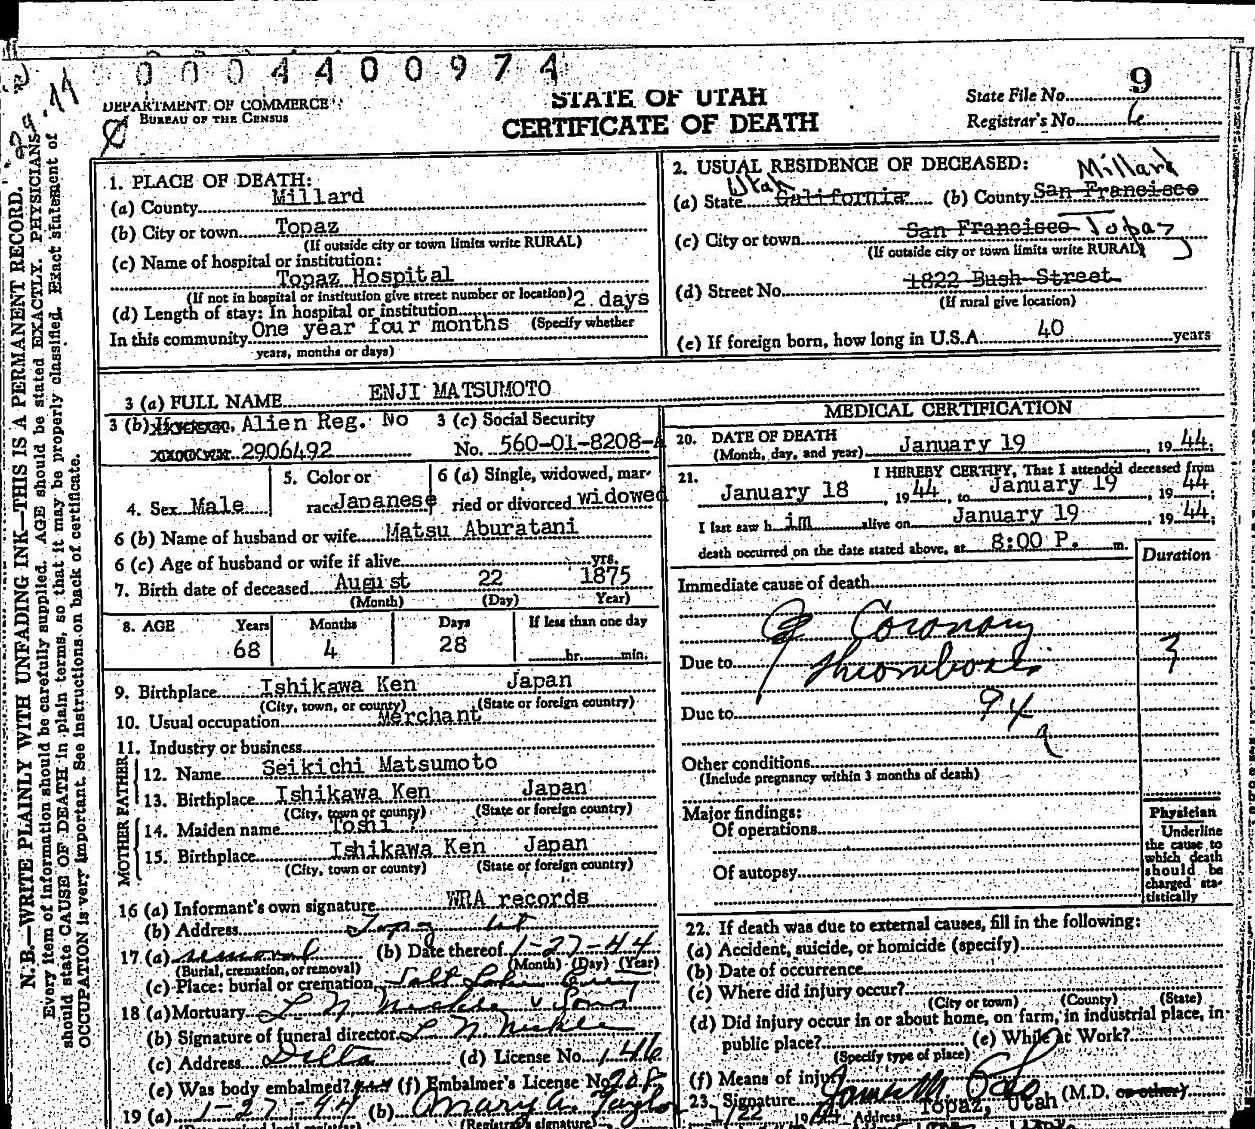 0004400974
DEPARTMENT OF COMMERCE
BUREAU OF THE CENSUS
STATE OF UTAH
CERTIFICATE OF DEATH
State File No. 9
Registrar's No. 6
N. B.—WRITE PLAINLY WITH UNFADING INK—THIS IS A PERMANENT RECORD.
Every item of information should be carefully supplied. AGE should be stated EXACTLY. PHYSICIANS
should state CAUSE OF DEATH in plain terms, so that it may be properly classified. Exact statement of
OCCUPATION is very important. See instructions on back of certificate.
1. PLACE OF DEATH:
(a) County Millard
(b) City or town Topaz
(If outside city or town limits write RURAL)
(c) Name of hospital or institution:
Topaz Hospital
(If not in hospital or institution give street number or location)
(d) Length of stay: In hospital or institution 2 days
In this community One year four months (Specify whether
years, months or days)
2. USUAL RESIDENCE OF DECEASED:
(a) State California Utah (b) County San Francisco Millard
(c) City or town San Francisco Topaz
(If outside city or town limits write RURAL)
(d) Street No. 1822 Bush Street
(If rural give location)
(e) If foreign born, how long in U.S.A. 40 years
3 (a) FULL NAME ENJI MATSUMOTO
3 (b) Alien Reg. No
2906492
3 (c) Social Security
No. 560-01-8208-A
4. Sex Male
5. Color or
race Japanese
6 (a) Single, widowed, mar-
ried or divorced widowed
6 (b) Name of husband or wife Matsu Aburatani
6 (c) Age of husband or wife if alive yrs.
7. Birth date of deceased August 22 1875
(Month) (Day) Year)
8. AGE Years Months Days If less than one day
68 4 28 hr. min.
9. Birthplace Ishikawa Ken Japan
(City, town, or county) (State or foreign country)
10. Usual occupation Merchant
11. Industry or business
FATHER
12. Name Seikichi Matsumoto
13. Birthplace Ishikawa Ken Japan
(City, town or county) (State or foreign country)
MOTHER
14. Maiden name Toshi ?
15. Birthplace Ishikawa Ken Japan
(City, town or county) (State or foreign country)
16 (a) Informant's own signature WRA records
(b) Address Topaz Ut
17 (a) removal (b) Date thereof 1-27-44
(Burial, cremation, or removal) (Month) (Day) (Year)
(c) Place: burial or cremation Salt Lake City
18 (a) Mortuary L N Nickle & Sons
(b) Signature of funeral director L N Nickle
(c) Address Delta (d) License No. 146
(e) Was body embalmed? yes (f) Embalmer's License No. 208
19 (a) 1-27-44 (b) Mary A. Taylor
(Registrar's signature)
MEDICAL CERTIFICATION
20. DATE OF DEATH
(Month, day, and year) January 19, 1944;
21. I HEREBY CERTIFY, That I attended deceased from
January 18, 1944, to January 19, 1944;
I last saw him alive on January 19, 1944;
death occurred on the date stated above, at 8:00 P. m.
Duration
Immediate cause of death
Coronary
Due to thrombosis 3
Due to 94
a
Other conditions
(Include pregnancy within 3 months of death)
Major findings:
Of operations
Of autopsy
Physician
Underline
the cause to
which death
should be
charged sta-
tistically
22. If death was due to external causes, fill in the following:
(a) Accident, suicide, or homicide (specify)
(b) Date of occurrence
(c) Where did injury occur?
(City or town) (County) (State)
(d) Did injury occur in or about home, on farm, in industrial place, in
public place? (e) While at Work?
(Specify type of place)
(f) Means of injury
23. Signature James M. Goto (M.D. or other)
1/22 1944 Address Topaz, Utah